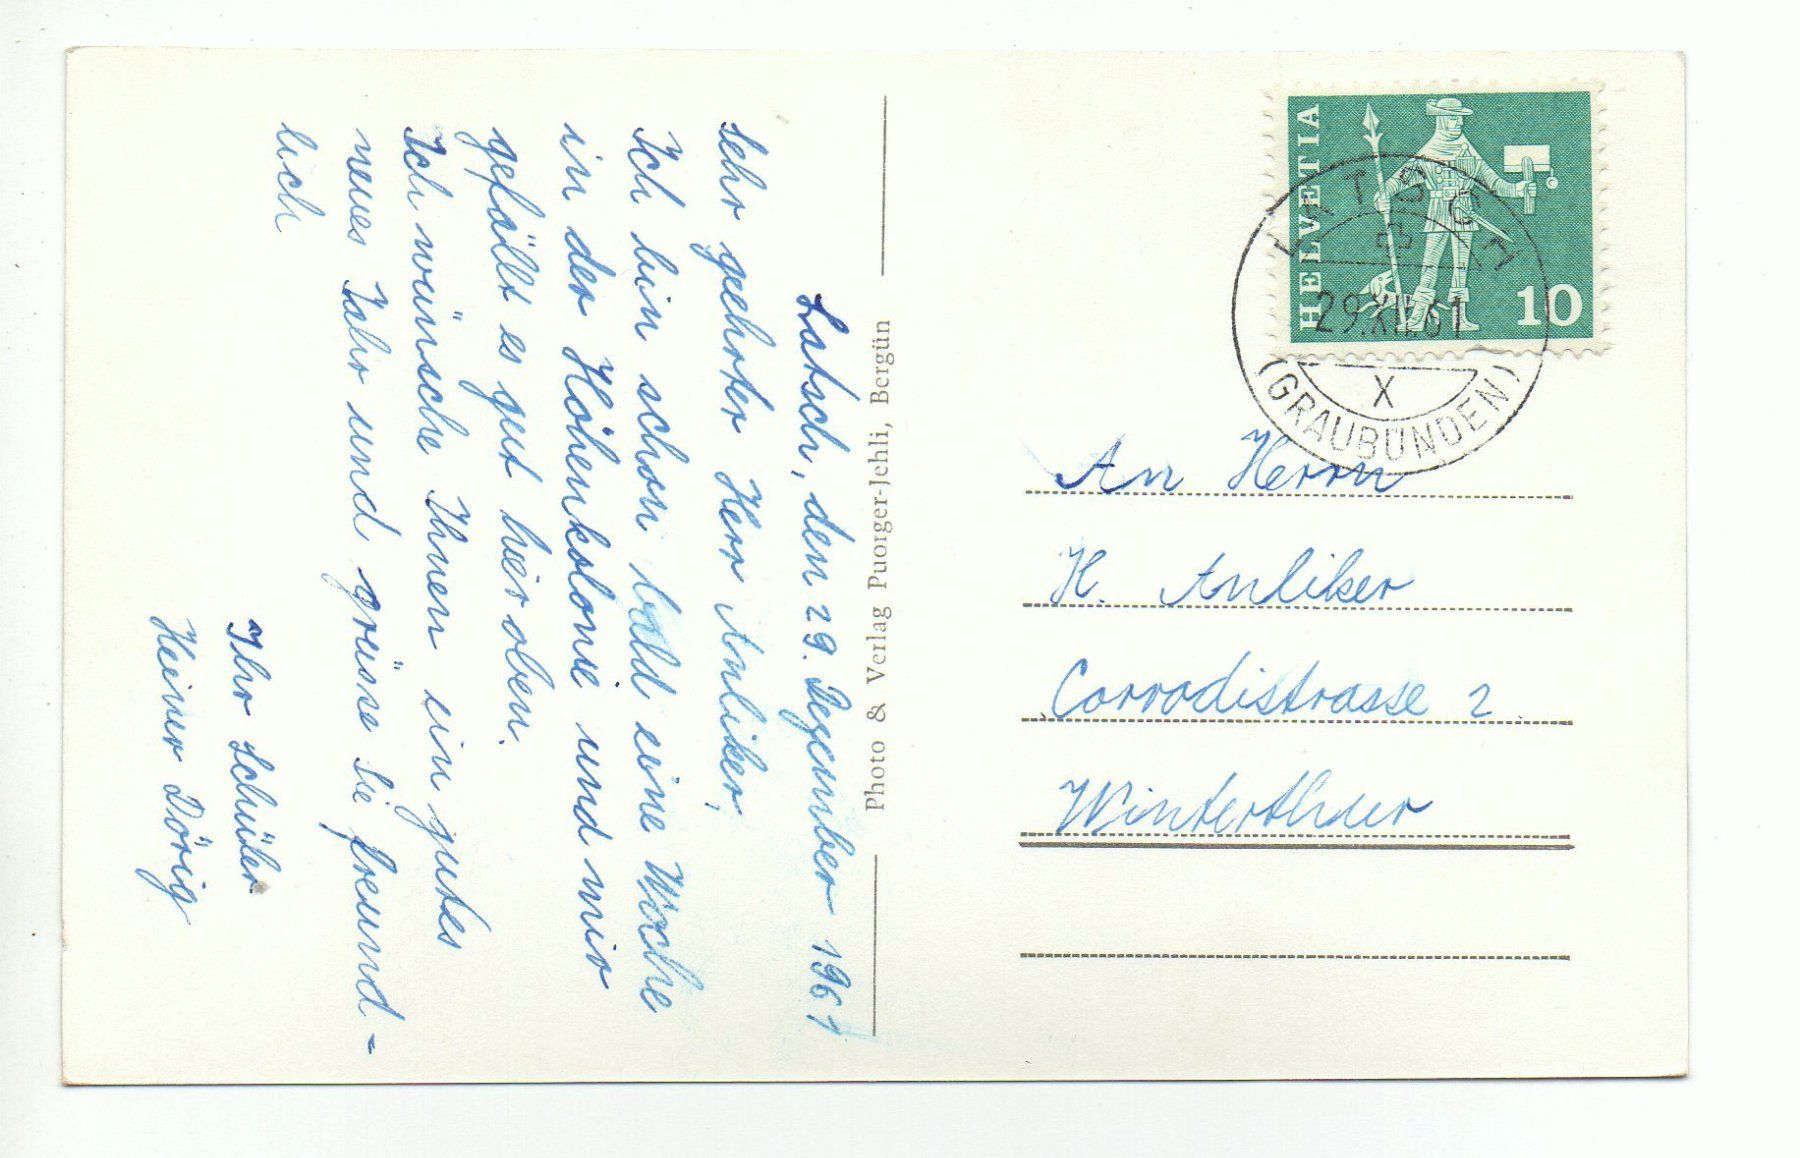 Latsch, den 29. Dezember 1961
Sehr geehrter Herr Anliker,
Ich bin schon bald eine Woche
in der Höhenkolonie und mir
gefällt es gut hier oben.
Ich wünsche Ihnen ein gutes
neues Jahr und grüsse Sie freund-
lich
Ihr Schüler
Heiner Dörig
Photo & Verlag Puorger-Jehli, Bergün
HELVETIA
10
LATSCH
29.XII.61
X
(GRAUBÜNDEN)
An Herrn
H. Anliker
Corrodistrasse 2
Winterthur